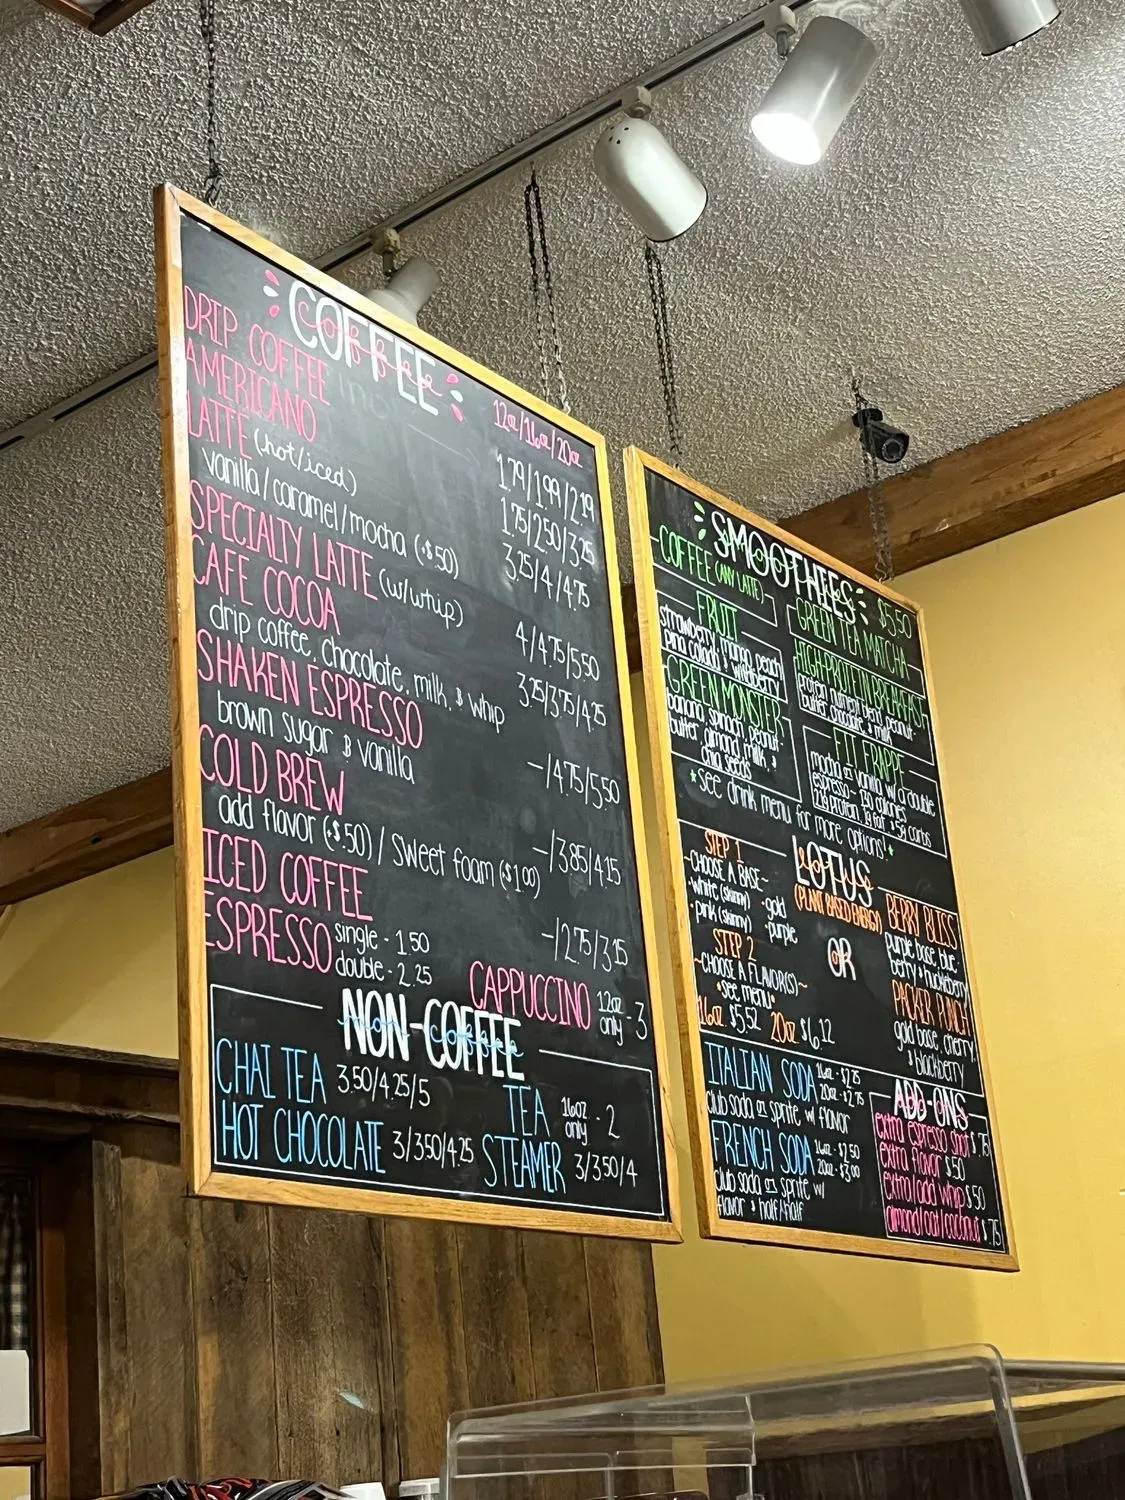 COFFEE
12oz/16oz/20oz
DRIP COFFEE 1.79/1.99/2.19
AMERICANO 1.75/2.50/3.25
LATTE (hot/iced) 3.25/4/4.75
vanilla/caramel/mocha (+$.50)
SPECIALTY LATTE (w/whip) 4/4.75/5.50
CAFE COCOA 3.25/3.75/4.25
drip coffee, chocolate, milk, & whip
SHAKEN ESPRESSO -/4.75/5.50
brown sugar & vanilla
COLD BREW -/3.85/4.15
add flavor (+$.50) / sweet foam ($1.00)
ICED COFFEE -/2.75/3.15
ESPRESSO single - 1.50
double - 2.25
CAPPUCCINO 12oz only - 3
NON-COFFEE
CHAI TEA 3.50/4.25/5
TEA 16oz only - 2
HOT CHOCOLATE 3/3.50/4.25
STEAMER 3/3.50/4
SMOOTHIES $5.50
COFFEE (ANY LATTE)
FRUIT
strawberry, mango, peach
pina colada & wildberry
GREEN MONSTER
banana, spinach, peanut
butter, almond milk, &
chia seeds
GREEN TEA MATCHA
HIGH-PROTEIN BREAKFAST
protein, nutrient blend, peanut
butter, chocolate, & milk
FIT FRAPPE
mocha or vanilla w/ a double
espresso - 220 calories
*see drink menu for more options!*
LOTUS
(PLANT BASED ENERGY)
STEP 1
~CHOOSE A BASE~
·white (skinny) ·gold
·pink (skinny) ·purple
STEP 2
~CHOOSE A FLAVOR(S)~
*see menu*
16oz $5.52 20oz $6.12
OR
BERRY BLISS
purple base, blue
berry & huckleberry
PACKER PUNCH
gold base, cherry,
& blackberry
ITALIAN SODA 16oz - $2.25
20oz - $2.75
club soda or sprite w/ flavor
FRENCH SODA 16oz - $2.50
20oz - $3.00
club soda or sprite w/
flavor & half/half
ADD-ONS
extra espresso shot $.75
extra flavor $.50
extra/add whip $.50
almond/oat/coconut $.75